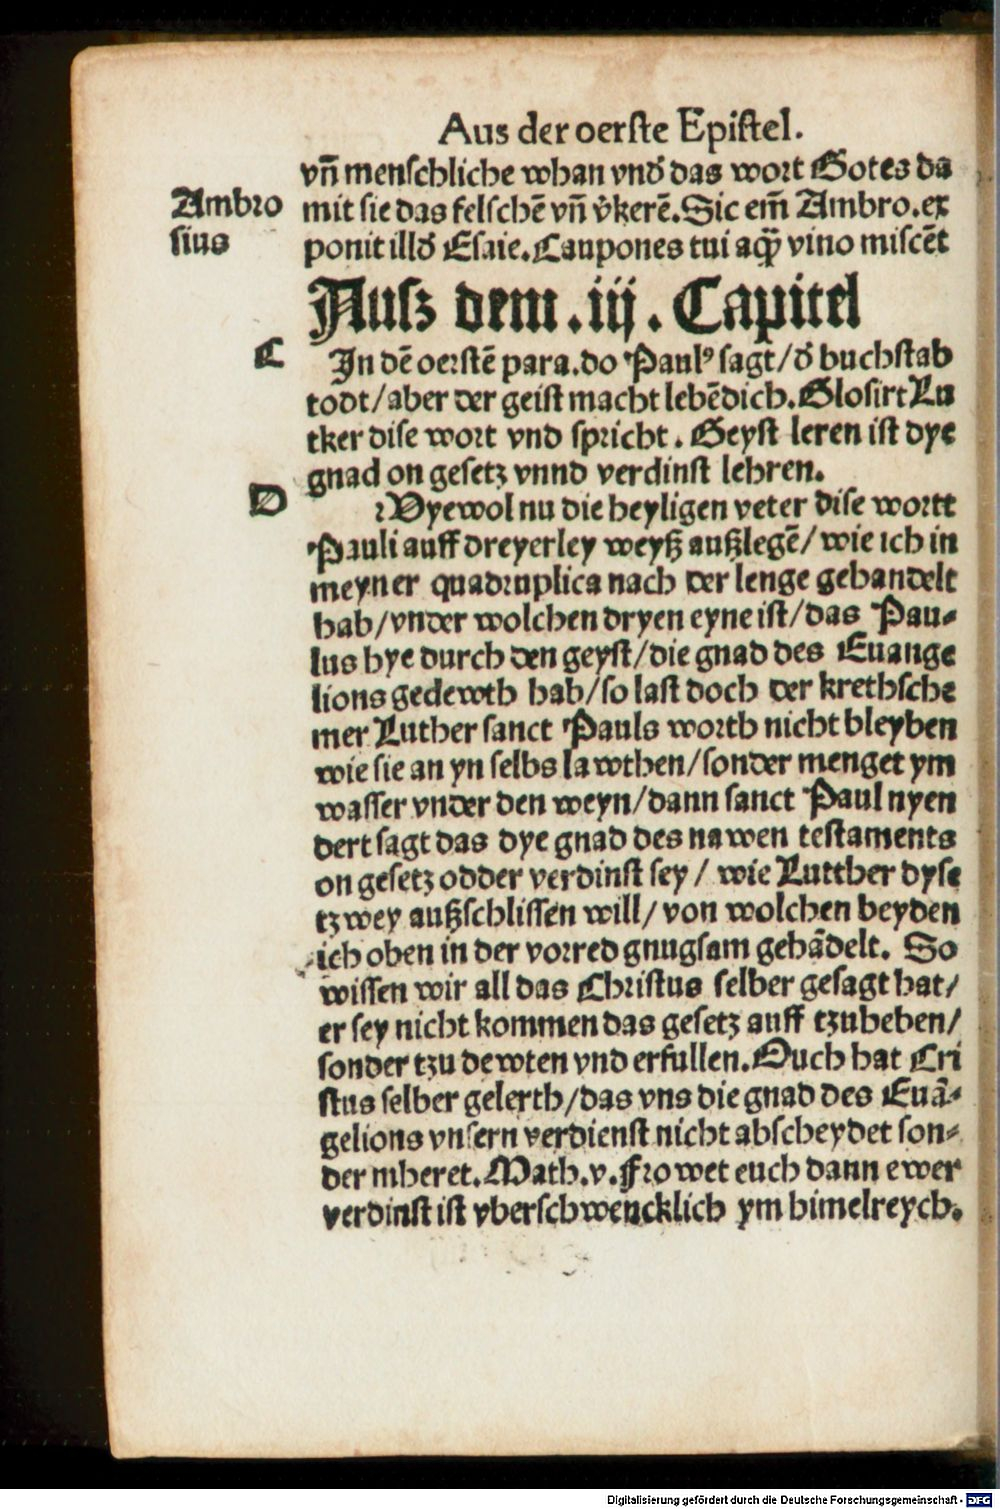 Aus der oerste Epistel.
vñ menschliche whan vnd̕ das wort Gotes da
Ambro
sius
mit sie das felschē vñ v̕kerē. Sic em̄ Ambro. ex
ponit illd̕ Esaie. Caupones tui aq̄ꝫ vino miscēt
Ausz dem .iij. Capitel
C
In dē oerstē para. do Paulꝰ sagt/d̕ buchstab
todt/aber der geist macht lebēdich. Glosirt Lu
tker dise wort vnd spricht. Geyst leren ist dye
gnad on gesetz vnnd verdinst lehren.
D
Wyewol nu die heyligen veter dise wortt
Pauli auff dreyerley weyß außlegē/wie ich in
meyner quadruplica nach der lenge gehandelt
hab/vnder wolchen dryen eyne ist/das Pau-
lus hye durch den geyst/die gnad des Euange
lions gedewth hab/so last doch der krethsche
mer Luther sanct Pauls worth nicht bleyben
wie sie an yn selbs lawthen/sonder menget ym
wasser vnder den weyn/dann sanct Paul nyen
dert sagt das dye gnad des nawen testaments
on gesetz odder verdinst sey/ wie Lutther dyse
tzwey außschlissen will/von wolchen beyden
ich oben in der vorred gnugsam gehādelt. So
wissen wir all das Christus selber gesagt hat/
er sey nicht kommen das gesetz auff tzuheben/
sonder tzu dewten vnd erfullen. Ouch hat Cri
stus selber gelerth/das vns die gnad des Euā-
gelions vnsern verdienst nicht abscheydet son-
der mheret. Math.v. Frowet euch dann ewer
verdinst ist vberschwencklich ym himelreych.
Digitalisierung gefördert durch die Deutsche Forschungsgemeinschaft - DFG